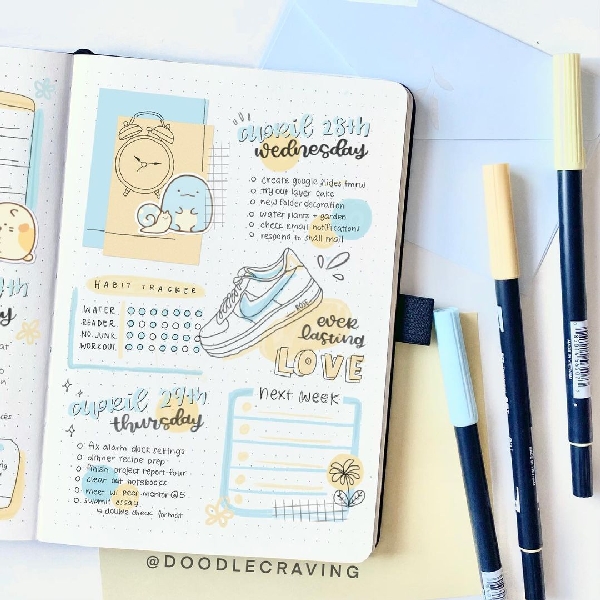 april 28th
wednesday
create google slides tmrw
try out layer cake
new folder decoration
water plants + garden
check email notifications
respond to small mail
HABIT TRACKER
WATER
READER
NO JUNK
WORKOUT
ever
lasting
LOVE
april 29th
thursday
fix alarm clock settings
dinner recipe prep
finish project report four
clear out notebooks
meet w/ peer mentor @5
submit essay
↳ double check format
next week
@DOODLECRAVING